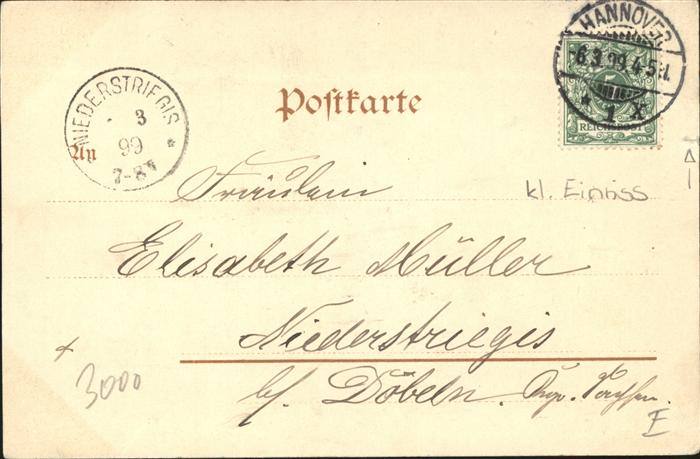 HANNOVER
6.3.99.4-5N.
* 1 X
5
REICHSPOST
NIEDERSTRIEGIS
3
99
7-8V
*
Postkarte
An
Fräulein
kl. Einriss
Elisabeth Müller
Niederstriegis
3000
b/. Döbeln. Kgr. Sachsen.
I